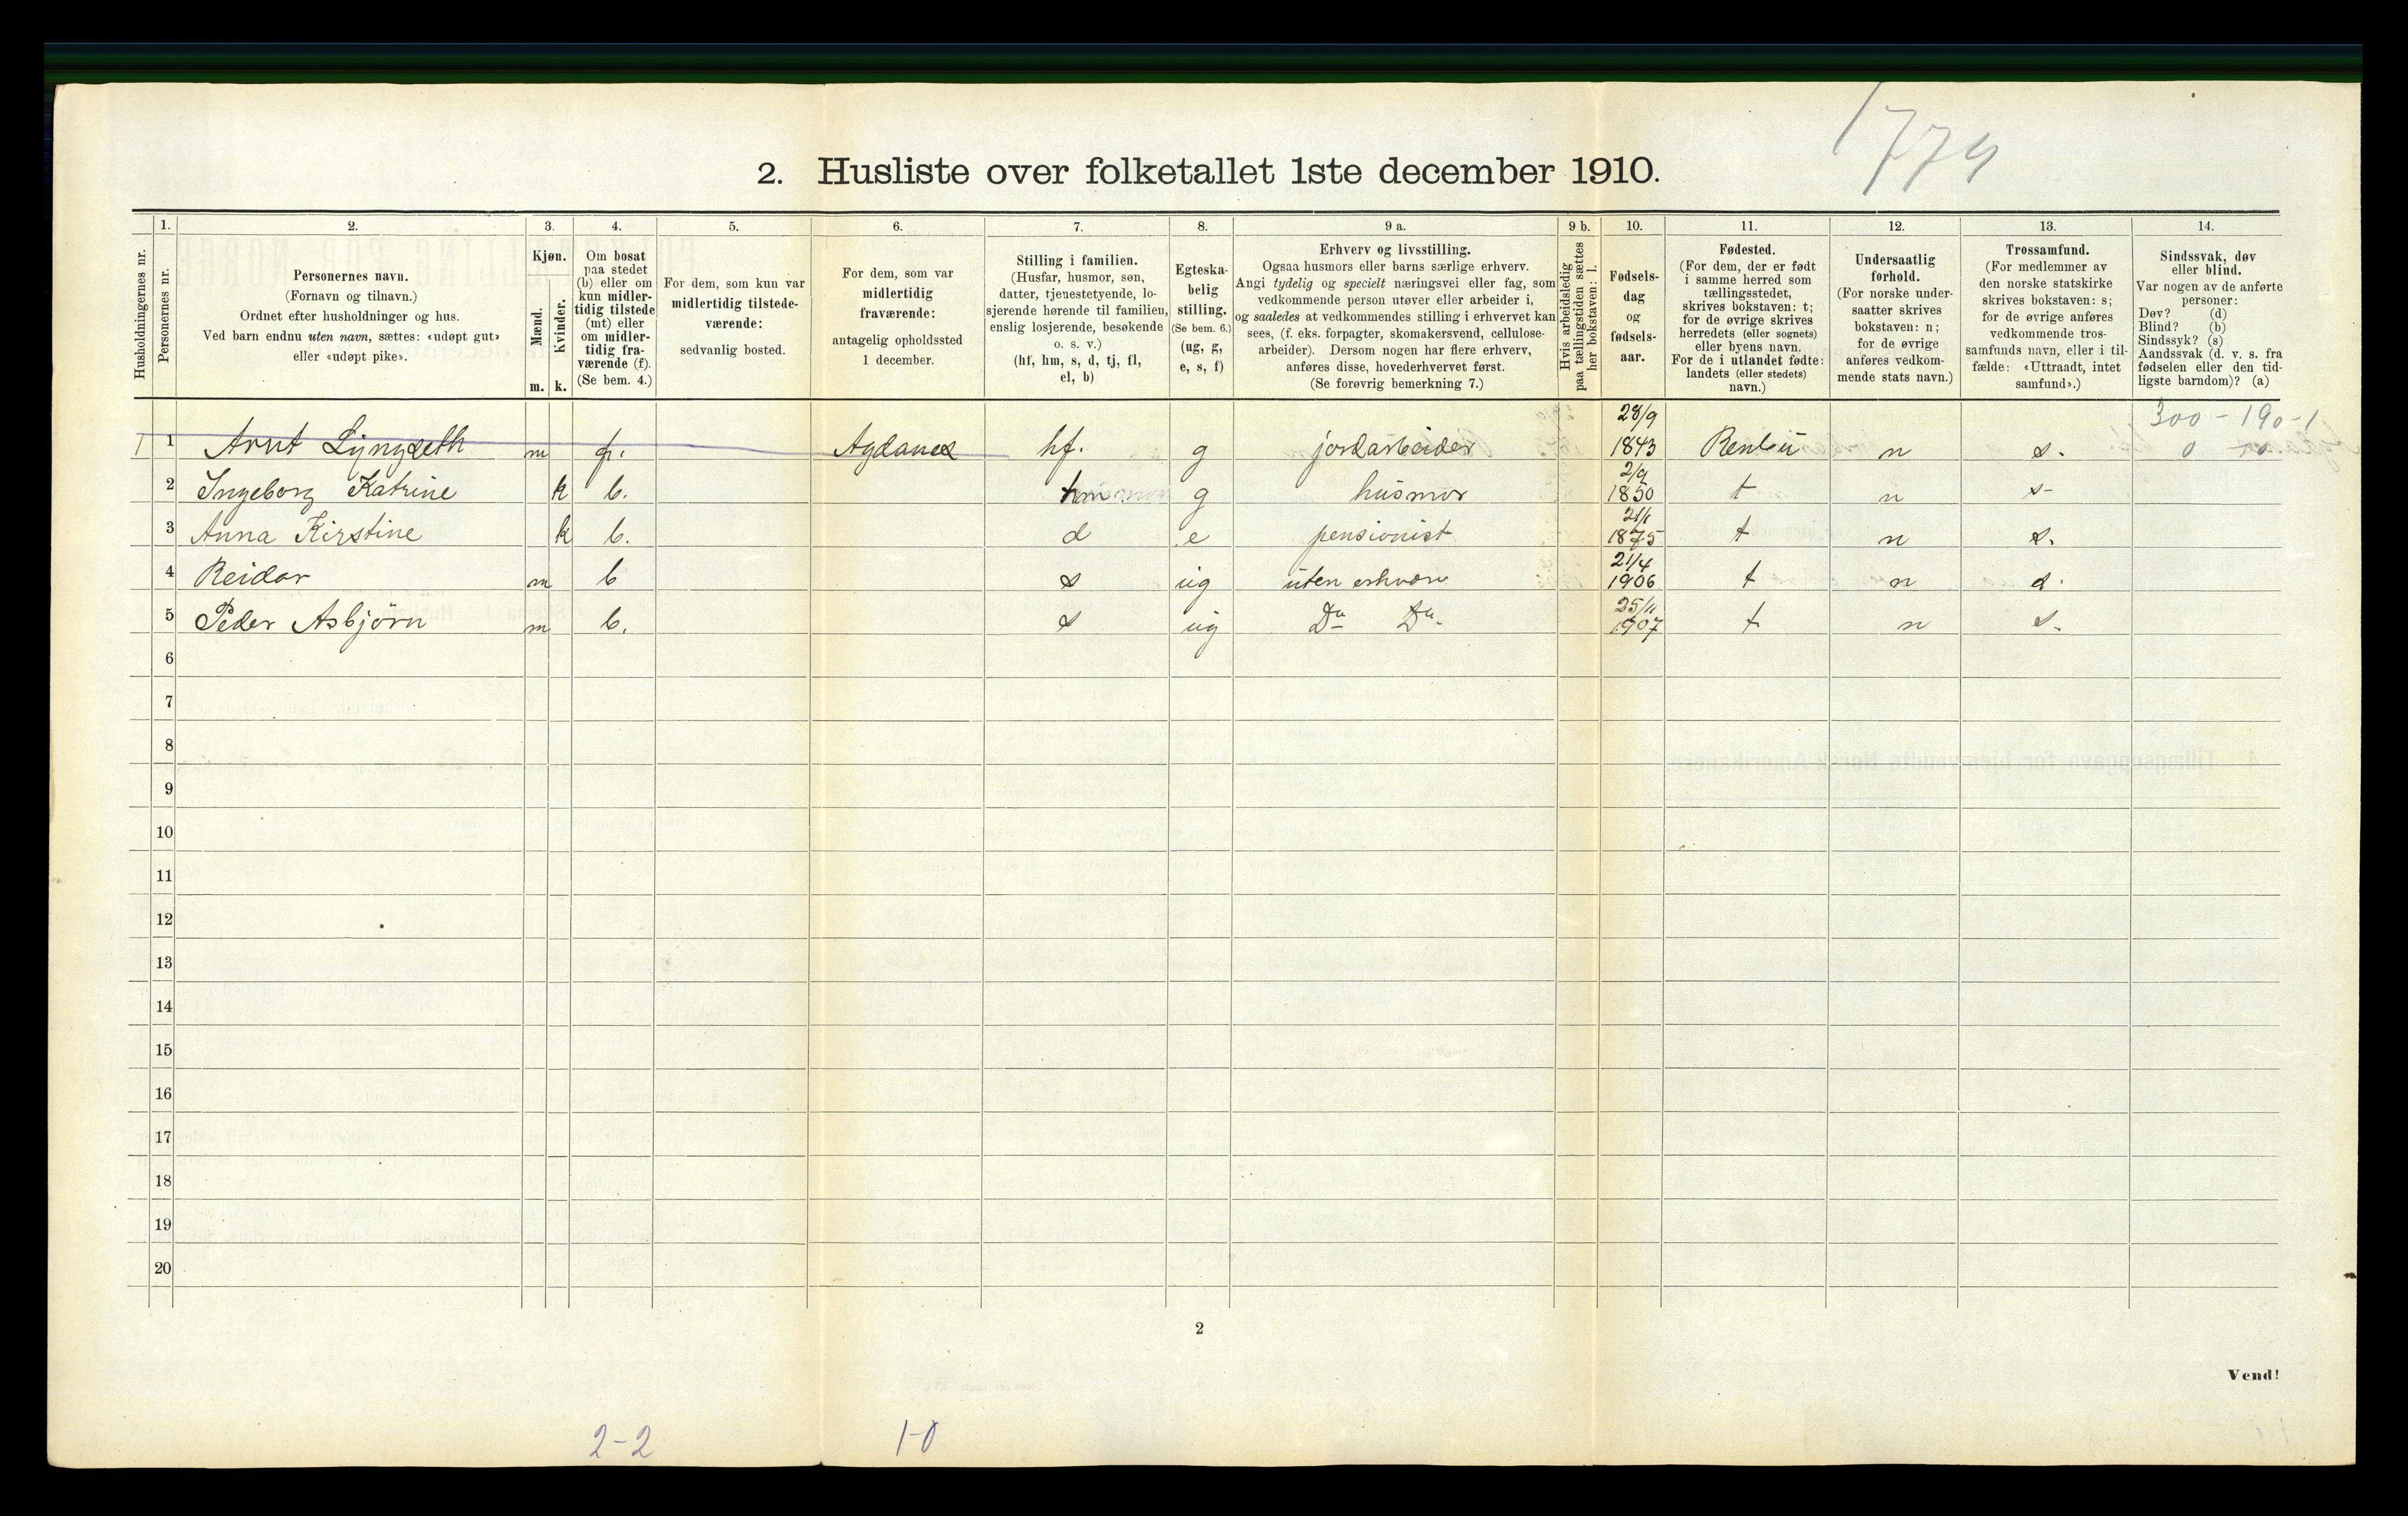 1779
2. Husliste over folketallet 1ste december 1910.
Husholdningernes nr.
1.
Personernes nr.
2.
Personernes navn.
(Fornavn og tilnavn.)
Ordnet efter husholdninger og hus.
Ved barn endnu uten navn, sættes: «udøpt gut»
eller «udøpt pike».
3.
Kjøn.
Mænd. Kvinder.
m. k.
4.
Om bosat
paa stedet
(b) eller om
kun midler-
tidig tilstede
(mt) eller
om midler-
tidig fra-
værende (f).
(Se bem. 4.)
5.
For dem, som kun var
midlertidig tilstede-
værende:
sedvanlig bosted.
6.
For dem, som var
midlertidig
fraværende:
antagelig opholdssted
1 december.
7.
Stilling i familien.
(Husfar, husmor, søn,
datter, tjenestetyende, lo-
sjerende hørende til familien,
enslig losjerende, besøkende
o. s. v.)
(hf, hm, s, d, tj, fl,
el, b)
8.
Egteska-
belig
stilling.
(Se bem. 6.)
(ug, g,
e, s, f)
9 a.
Erhverv og livsstilling.
Ogsaa husmors eller barns særlige erhverv.
Angi tydelig og specielt næringsvei eller fag, som
vedkommende person utøver eller arbeider i,
og saaledes at vedkommendes stilling i erhvervet kan
sees, (f. eks. forpagter, skomakersvend, cellulose-
arbeider). Dersom nogen har flere erhverv,
anføres disse, hovederhvervet først.
(Se forøvrig bemerkning 7.)
9 b.
Hvis arbeidsledig
paa tællingstiden sættes
her bokstaven: l.
10.
Fødsels-
dag
og
fødsels-
aar.
11.
Fødested.
(For dem, der er født
i samme herred som
tællingsstedet,
skrives bokstaven: t;
for de øvrige skrives
herredets (eller sognets)
eller byens navn.
For de i utlandet fødte:
landets (eller stedets)
navn.)
12.
Undersaatlig
forhold.
(For norske under-
saatter skrives
bokstaven: n;
for de øvrige
anføres vedkom-
mende stats navn.)
13.
Trossamfund.
(For medlemmer av
den norske statskirke
skrives bokstaven: s;
for de øvrige anføres
vedkommende tros-
samfunds navn, eller i til-
fælde: «Uttraadt, intet
samfund».)
14.
Sindssvak, døv
eller blind.
Var nogen av de anførte
personer:
Døv? (d)
Blind? (b)
Sindssyk? (s)
Aandssvak (d. v. s. fra
fødselen eller den tid-
ligste barndom)? (a)
300-190-1
1 Arnt Lyngseth m f. Agdanes hf. g jordarbeider 28/9 1843 n s. 0
2 Ingeborg Katrine k b. hm g husmor 2/9 1850 t n s-
3 Anna Kirstine k b. d e pensionist 21/1 1875 t n s.
4 Reidar m b s ug uten erhverv 21/4 1906 t n s.
5 Peder Asbjörn m b. s ug Do Do 25/11 1907 t n s.
6
7
8
9
10
11
12
13
14
15
16
17
18
19
20
2
Vend!
2-2 1-0